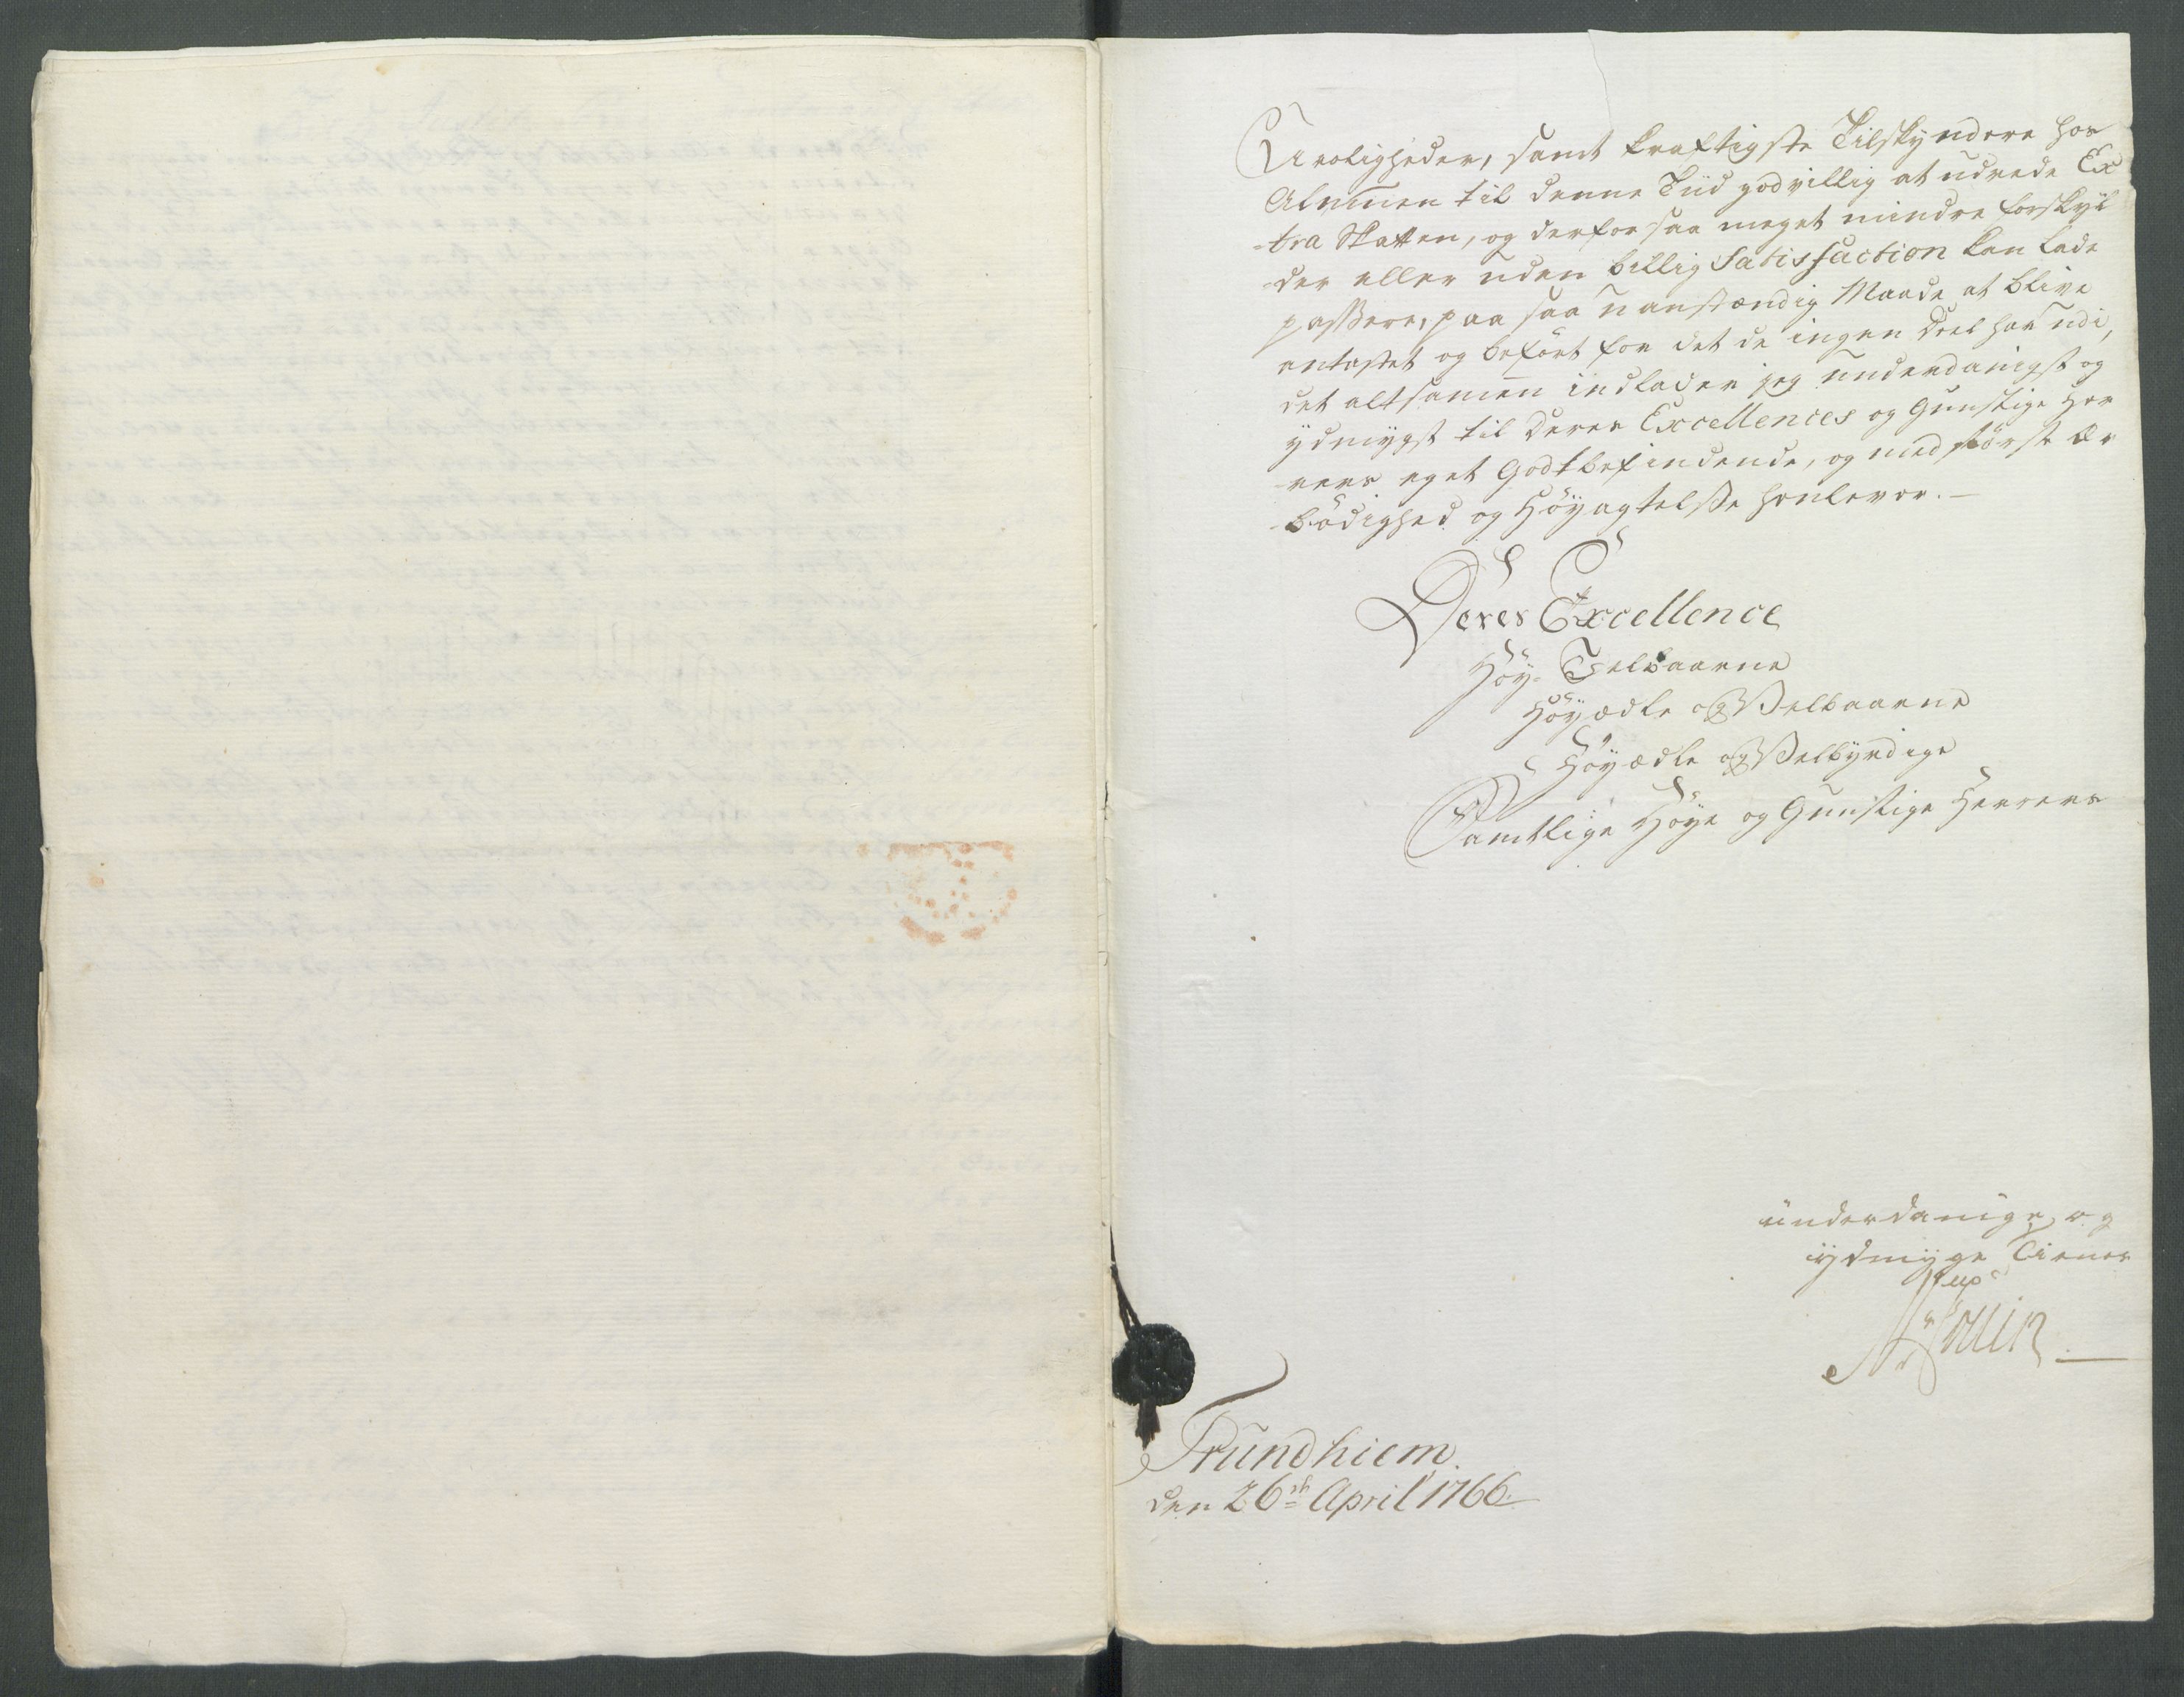 Uroligheder, samt kraftigste Tilskyndere hos
Almuen til denne Tiid godvillig at udrede Ex
-tra Skatten, og derfor saa meget mindre forskyl
-der eller uden billig Satisfaction kan lade
passere, paa saa uanstændig Maade at blive
antastet og beført for det de ingen Deel har udi,
det altsamen indlader jeg underdanigst og
ydmygst til Deres Excellences og Gunstige Her
-rers eget Godtbefindende, og med störste Ær
-bödighed og Höyagtelse henlever. —
Deres Excellence
Höy-Velbaarne
Höyædle og Velbaarne
Höyædle og Velbyrdige
Samtlige Höye og Gunstige Herrers
underdanige og
ydmyge Tiener
Trundhiem.
den 26de April 1766.